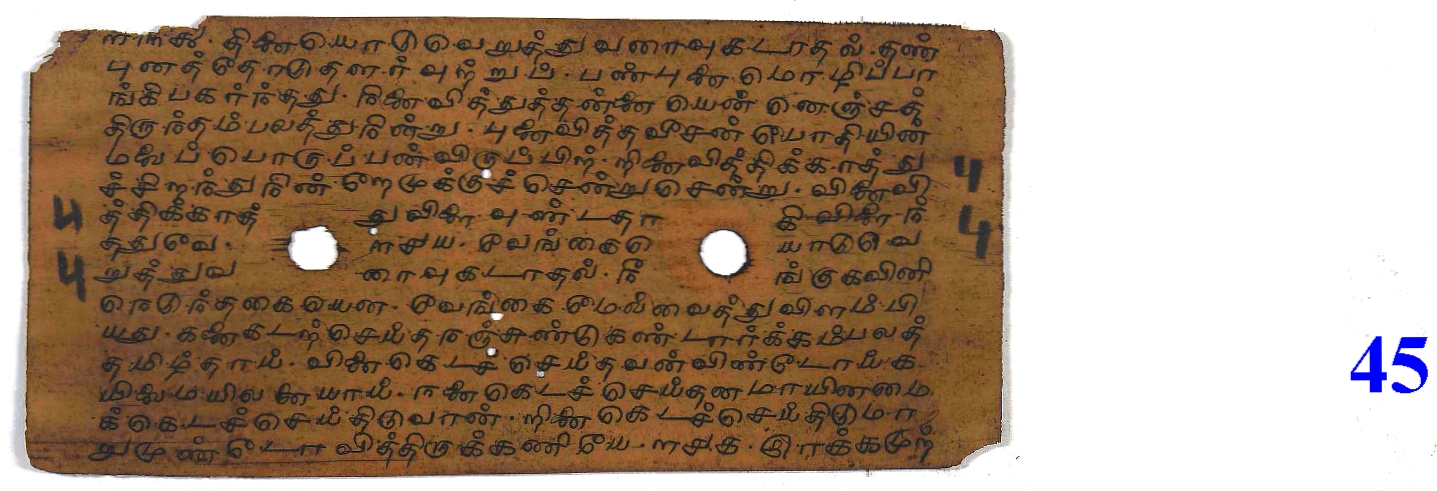 தினையொடுவெறுத்துவரைவுகடாதல். தண்
புனத்தோடுதளர்வுற்றுப். பண்புனை மொழிப்பா
ங்கிபகர்ந்தது. நினைவித்துத்தன்னை யென் னெஞ்சத்
திருந்தம்பலத்துநின்று. புனைவித்தவீசன் பொதியின்
மலைப் பொருப்பன் விருப்பிற். றினைவித்திக்காத்து
ச்சிறந்துநின்றேமுக்குச் சென்றுசென்று. வினைவி
த்திக்காத் துவிளை வுண்டதா கிவிளைந்
ததுவே. ளசய. வேங்கையொ டுவெ
றுத்துவ ரைவுகடாதல். நீ ங்குகவினி
நெடுந்தகையென. வேங்கை மேல்வைத்துவிளம்பி
யது. கனைகடற்செய்தநஞ்சுண்டுகண்டார்க்கம்பலத்
தமிழ்தாய். வினைகெடச் செய்தவன்விண்டோய்க
யிலைமயிலனையாய். நனைகெடச் செய்தனமாயினமை
க்கெடச்செய்திடுவான். றினைகெடச்செய்திடுமா
றுமுண்டோவித்திருக்கணியே. ளசக. இரக்கமுற்
45